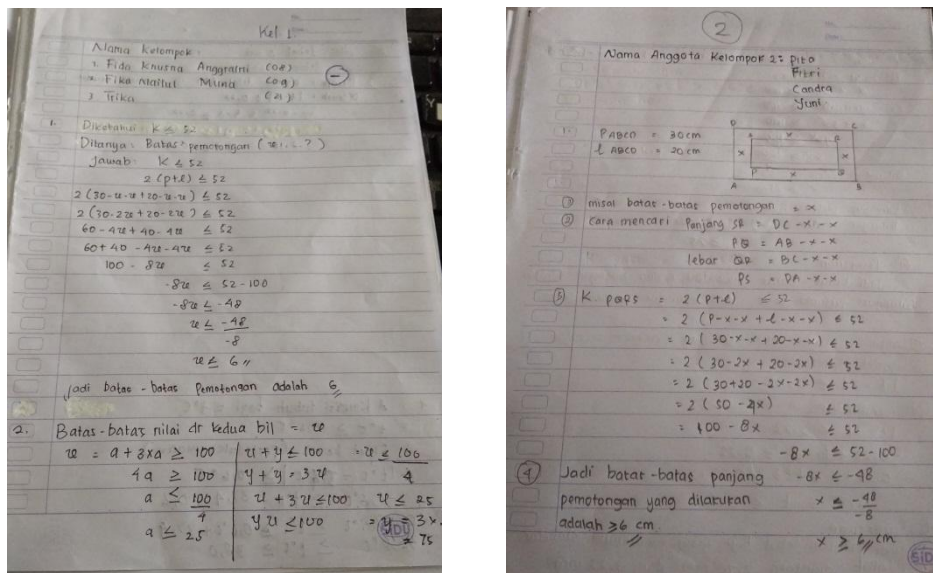 Kel. 1
Nama Kelompok :
1. Fida Khusna Anggraini (08)
2. Fika Maitul Muna (09)
3. Trika (21)
1. Diketahui : K ≤ 52
Ditanya : Batas² pemotongan ( x . . . ?)
Jawab : K ≤ 52
2 (p+l) ≤ 52
2 (30-x-x+20-x-x) ≤ 52
2 (30-2x+20-2x) ≤ 52
60-4x+40-4x ≤ 52
60+40-4x-4x ≤ 52
100 - 8x ≤ 52
-8x ≤ 52-100
-8x ≤ -48
x ≤ -48
-8
x ≤ 6
Jadi batas-batas Pemotongan adalah 6
2. Batas-batas nilai dr kedua bil = x
x = a + 3xa ≥ 100
4a ≥ 100
a ≤ 100
4
a ≤ 25
x + y ≤ 100 = x ≤ 100
4
y + y = 3x
x + 3x ≤ 100 x ≤ 25
yx ≤ 100 = y = 3x
= 75
SIDU
2
Nama Anggota Kelompok 2 : Pito
Fitri
Candra
Yuni
1. P ABCD = 30 cm
l ABCD = 20 cm
D C
x
x x
P
x
A B
① misal batas-batas pemotongan = x
② Cara mencari Panjang SR = DC -x -x
PQ = AB -x-x
lebar QR = BC -x-x
PS = DA -x-x
③ K PQRS = 2 (P+l) ≤ 52
= 2 (P-x-x + l-x-x) ≤ 52
= 2 ( 30-x-x + 20-x-x) ≤ 52
= 2 ( 30-2x + 20-2x) ≤ 52
= 2 ( 30+20 -2x-2x) ≤ 52
= 2 ( 50 -4x) ≤ 52
= 100 - 8x ≤ 52
-8x ≤ 52-100
④ Jadi batas-batas panjang -8x ≤ -48
pemotongan yang dilakukan x ≤ -48
-8
adalah ≥6 cm
x ≥ 6 cm